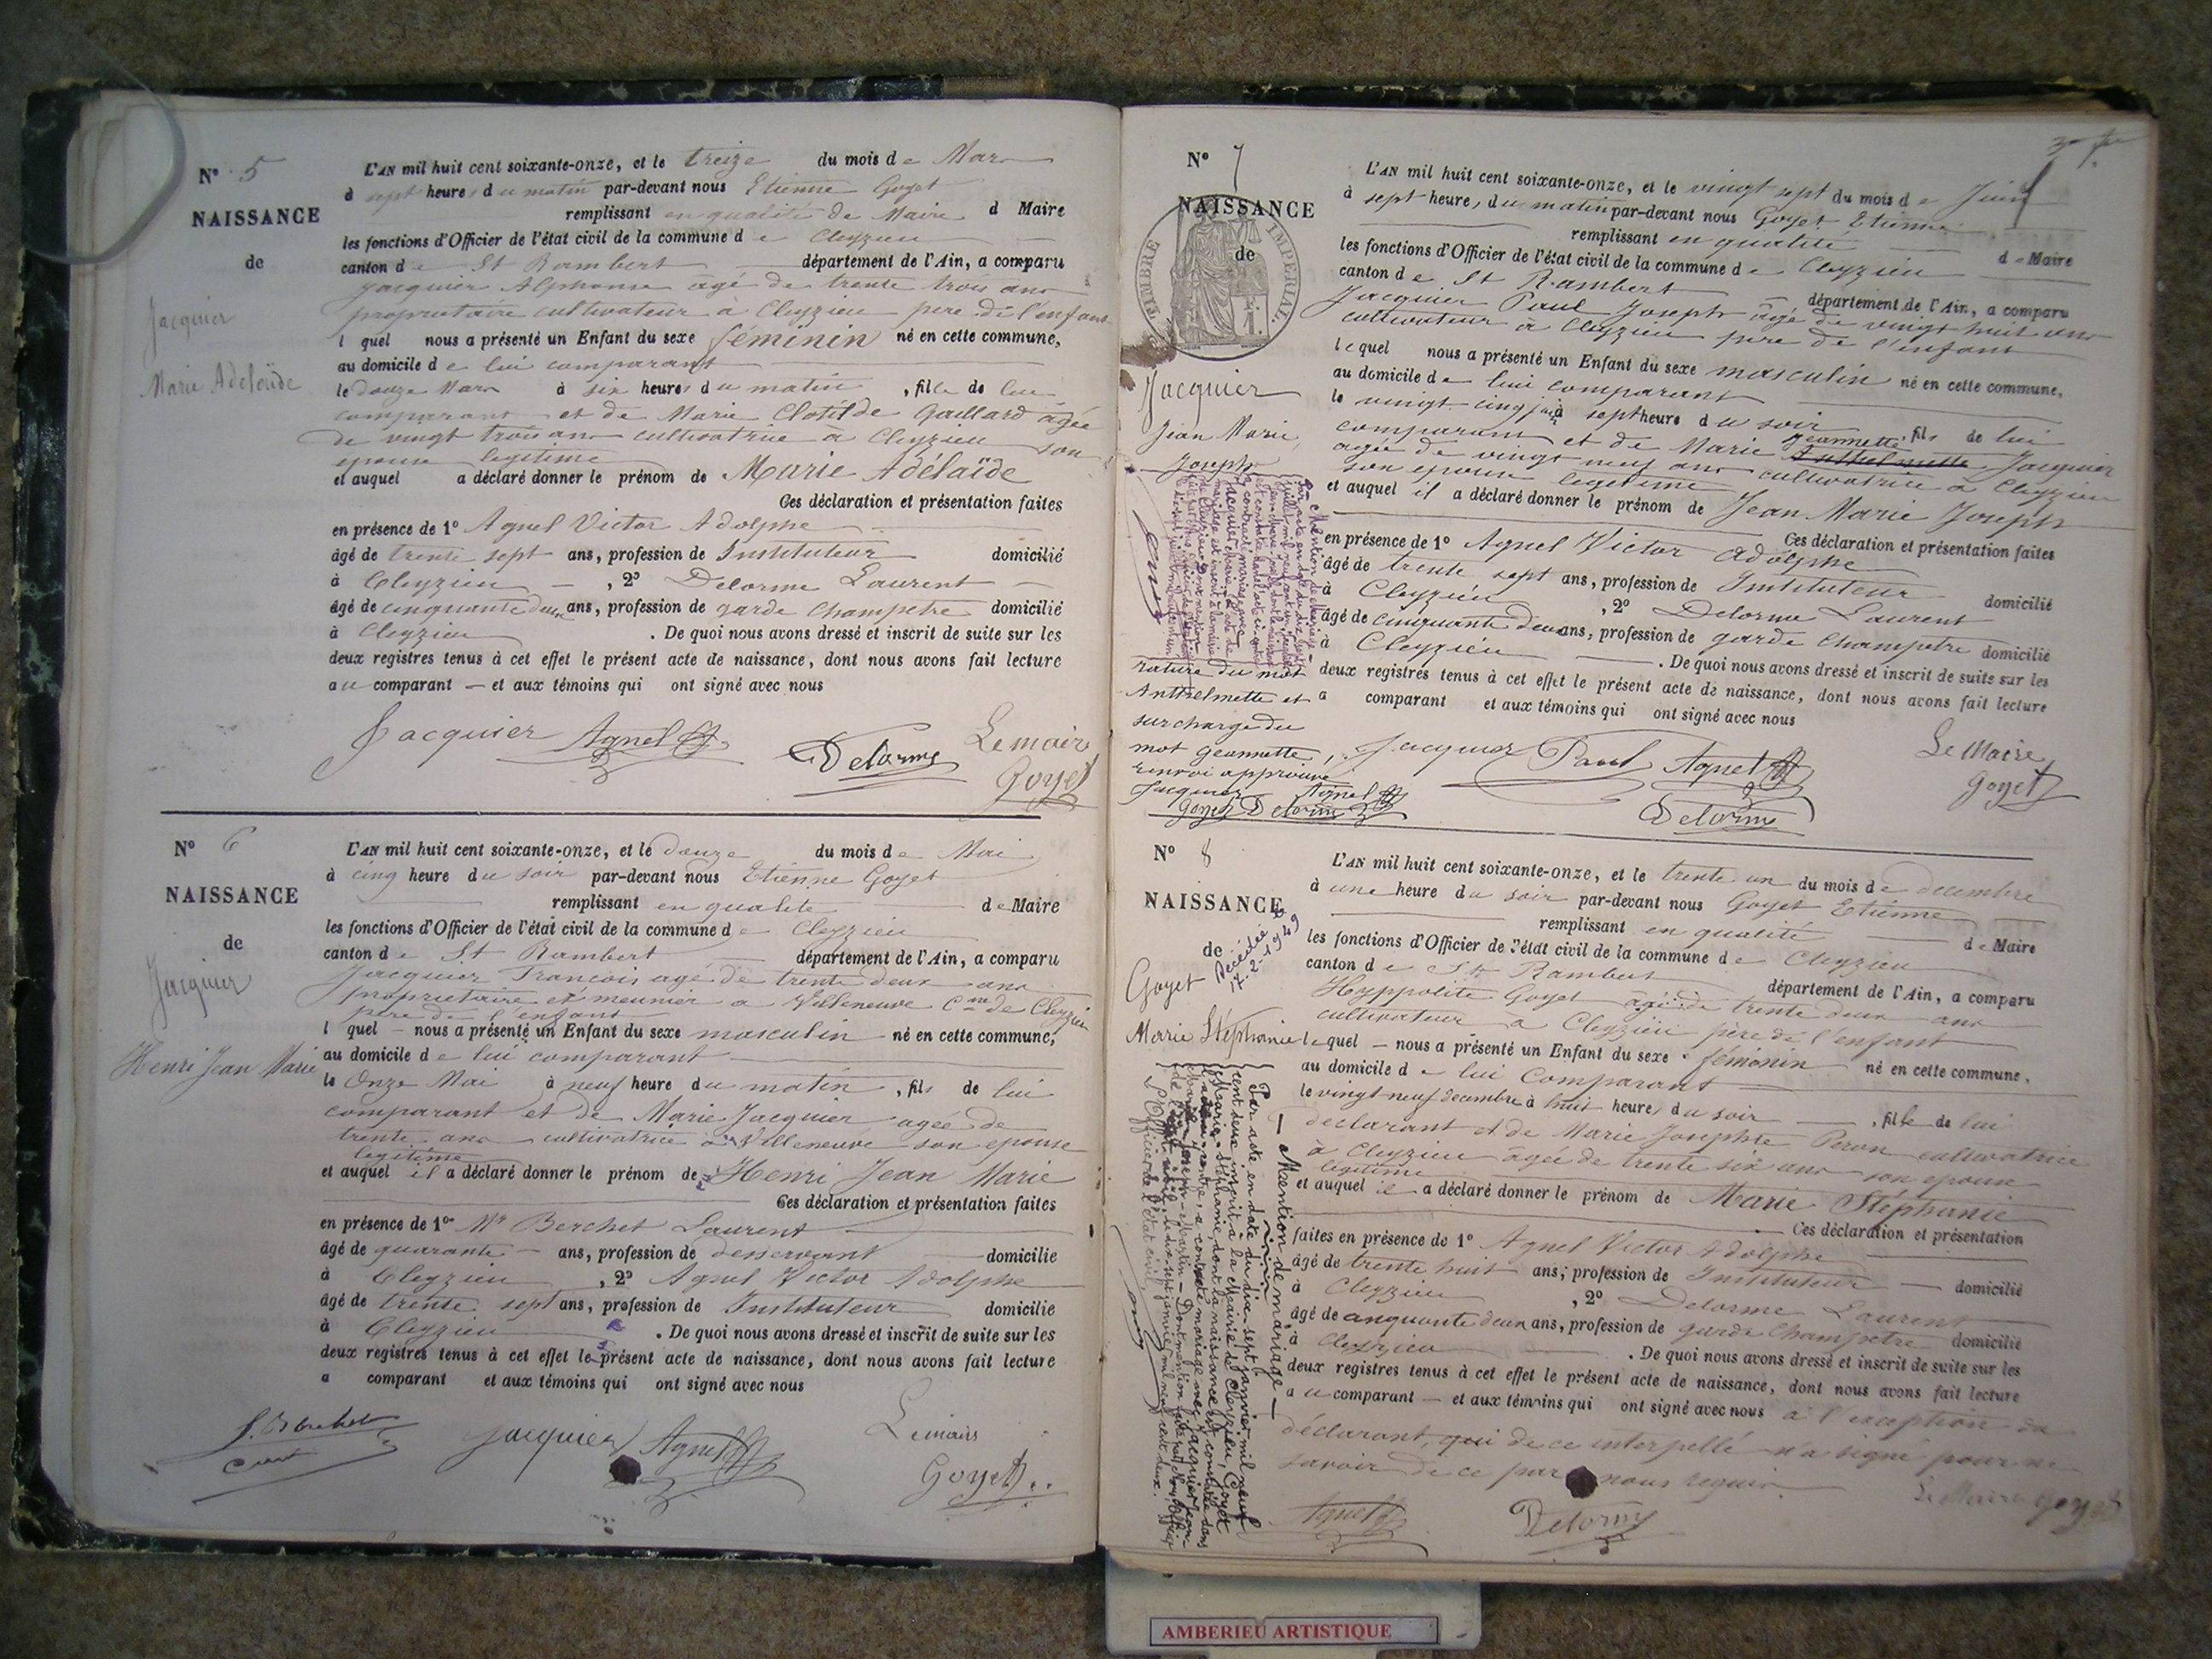 N° 5
NAISSANCE
de
Jacquier
Marie Adelaïde
L'AN mil huit cent soixante-onze, et le treize du mois de Mars
à sept heure du matin par-devant nous Etienne Goyet
remplissant en qualité de Maire d Maire
les fonctions d'Officier de l'état civil de la commune de Cleyzieu
canton de St Rambert département de l'Ain, a comparu
Jacquier Alphonse agé de trente trois ans
propriétaire cultivateur à Cleyzieu père de l'enfant
l quel nous a présenté un Enfant du sexe féminin né en cette commune,
au domicile de lui comparant
le douze Mars à six heures du matin, fille de lui
comparant et de Marie Clotilde Gaillard agée
de vingt trois ans cultivatrice à Cleyzieu son
epouse legitime
et auquel a déclaré donner le prénom de Marie Adélaïde
Ces déclaration et présentation faites
en présence de 1° Agnel Victor Adolphe
âgé de trente sept ans, profession de Instituteur domicilié
à Cleyzieu, 2° Delorme Laurent
âgé de cinquante deux ans, profession de garde Champetre domicilié
à Cleyzieu. De quoi nous avons dressé et inscrit de suite sur les
deux registres tenus à cet effet le présent acte de naissance, dont nous avons fait lecture
au comparant — et aux témoins qui ont signé avec nous
Jacquier Agnel Delorme Le maire
Goyet
N° 6
NAISSANCE
de
Jacquier
Henri Jean Marie
L'AN mil huit cent soixante-onze, et le douze du mois de Mai
à cinq heure du soir par-devant nous Etienne Goyet
remplissant en qualité de Maire
les fonctions d'Officier de l'état civil de la commune de Cleyzieu
canton de St Rambert département de l'Ain, a comparu
Jacquier Francois agé de trente deux ans
propriétaire et meunier a Villeneuve Cne de Cleyzieu
père de l'enfant
l quel — nous a présenté un Enfant du sexe masculin né en cette commune,
au domicile de lui comparant
le Onze Mai à neuf heure du matin, fils de lui
comparant et de Marie Jacquier agée de
trente ans cultivatrice a Villeneuve son epouse
legitime
et auquel il a déclaré donner le prénom de Henri Jean Marie
Ces déclaration et présentation faites
en présence de 1° Mr Berchet Laurent
âgé de quarante ans, profession de desservant domicilié
à Cleyzieu, 2° Agnel Victor Adolphe
âgé de trente sept ans, profession de Instituteur domicilié
à Cleyzieu. De quoi nous avons dressé et inscrit de suite sur les
deux registres tenus à cet effet le présent acte de naissance, dont nous avons fait lecture
a comparant et aux témoins qui ont signé avec nous
Jacquier Agnel Le maire
Goyet
N° 7
NAISSANCE
de
TIMBRE IMPERIAL
Jacquier
Jean Marie
Joseph
L'AN mil huit cent soixante-onze, et le vingt sept du mois de Juin
à sept heure, du matin par-devant nous Goyet Etienne
remplissant en qualité de Maire
les fonctions d'Officier de l'état civil de la commune de Cleyzieu
canton de St Rambert département de l'Ain, a comparu
Jacquier Paul Joseph agé de vingt huit ans
cultivateur à Cleyzieu père de l'enfant
lequel nous a présenté un Enfant du sexe masculin né en cette commune,
au domicile de lui comparant
le vingt cinq juin à sept heure du soir, fils de lui
comparant et de Marie Jeannette Anthelmette Jacquier
agée de vingt neuf ans cultivatrice à Cleyzieu
son epouse legitime
et auquel il a déclaré donner le prénom de Jean Marie Joseph
Ces déclaration et présentation faites
en présence de 1° Agnel Victor Adolphe
âgé de trente sept ans, profession de Instituteur domicilié
à Cleyzieu, 2° Delorme Laurent
âgé de cinquante deux ans, profession de garde Champetre domicilié
à Cleyzieu. De quoi nous avons dressé et inscrit de suite sur les
deux registres tenus à cet effet le présent acte de naissance, dont nous avons fait lecture
a comparant et aux témoins qui ont signé avec nous
Mention de mariage
rature du mot
Anthelmette et
surcharge du
mot geannette,
renvoi approuvé
Jacquier Agnel
Goyet Delorme
Jacquier Paul Agnel Le Maire
Delorme Goyet
N° 8
NAISSANCE
de
Décédée le
17-2-1949
Goyet
Marie Stéphanie
L'AN mil huit cent soixante-onze, et le trente un du mois de decembre
à une heure du soir par-devant nous Goyet Etienne
remplissant en qualité de Maire
les fonctions d'Officier de l'état civil de la commune de Cleyzieu
canton de St Rambert département de l'Ain, a comparu
Hyppolite Goyet agé de trente deux ans
cultivateur à Cleyzieu père de l'enfant
lequel — nous a présenté un Enfant du sexe féminin né en cette commune,
au domicile de lui Comparant
le vingt neuf decembre à huit heures du soir, fille de lui
declarant et de Marie Josephte Peron cultivatrice
à Cleyzieu agée de trente six ans son epouse
légitime
et auquel il a déclaré donner le prénom de Marie Stéphanie
Ces déclaration et présentation
faites en présence de 1° Agnel Victor Adolphe
âgé de trente huit ans, profession de Instituteur domicilié
à Cleyzieu, 2° Delorme Laurent
âgé de cinquante deux ans, profession de garde Champetre domicilié
à Cleyzieu. De quoi nous avons dressé et inscrit de suite sur les
deux registres tenus à cet effet le présent acte de naissance, dont nous avons fait lecture
au comparant — et aux témoins qui ont signé avec nous à l'exception du
déclarant, qui de ce interpellé n'a signé pour ne
savoir de ce par nous requis
— Mention de mariage —
Par acte en date du dix-sept janvier mil neuf
cent deux inscrit à la Mairie de Cleyzieu, Goyet
Marie-Stéphanie dont la naissance est constatée dans
l'acte ci-contre, a contracté mariage avec Jacquier Jean-
L'Officier de l'état civil,
Agnel Delorme Le Maire Goyet
AMBERIEU ARTISTIQUE